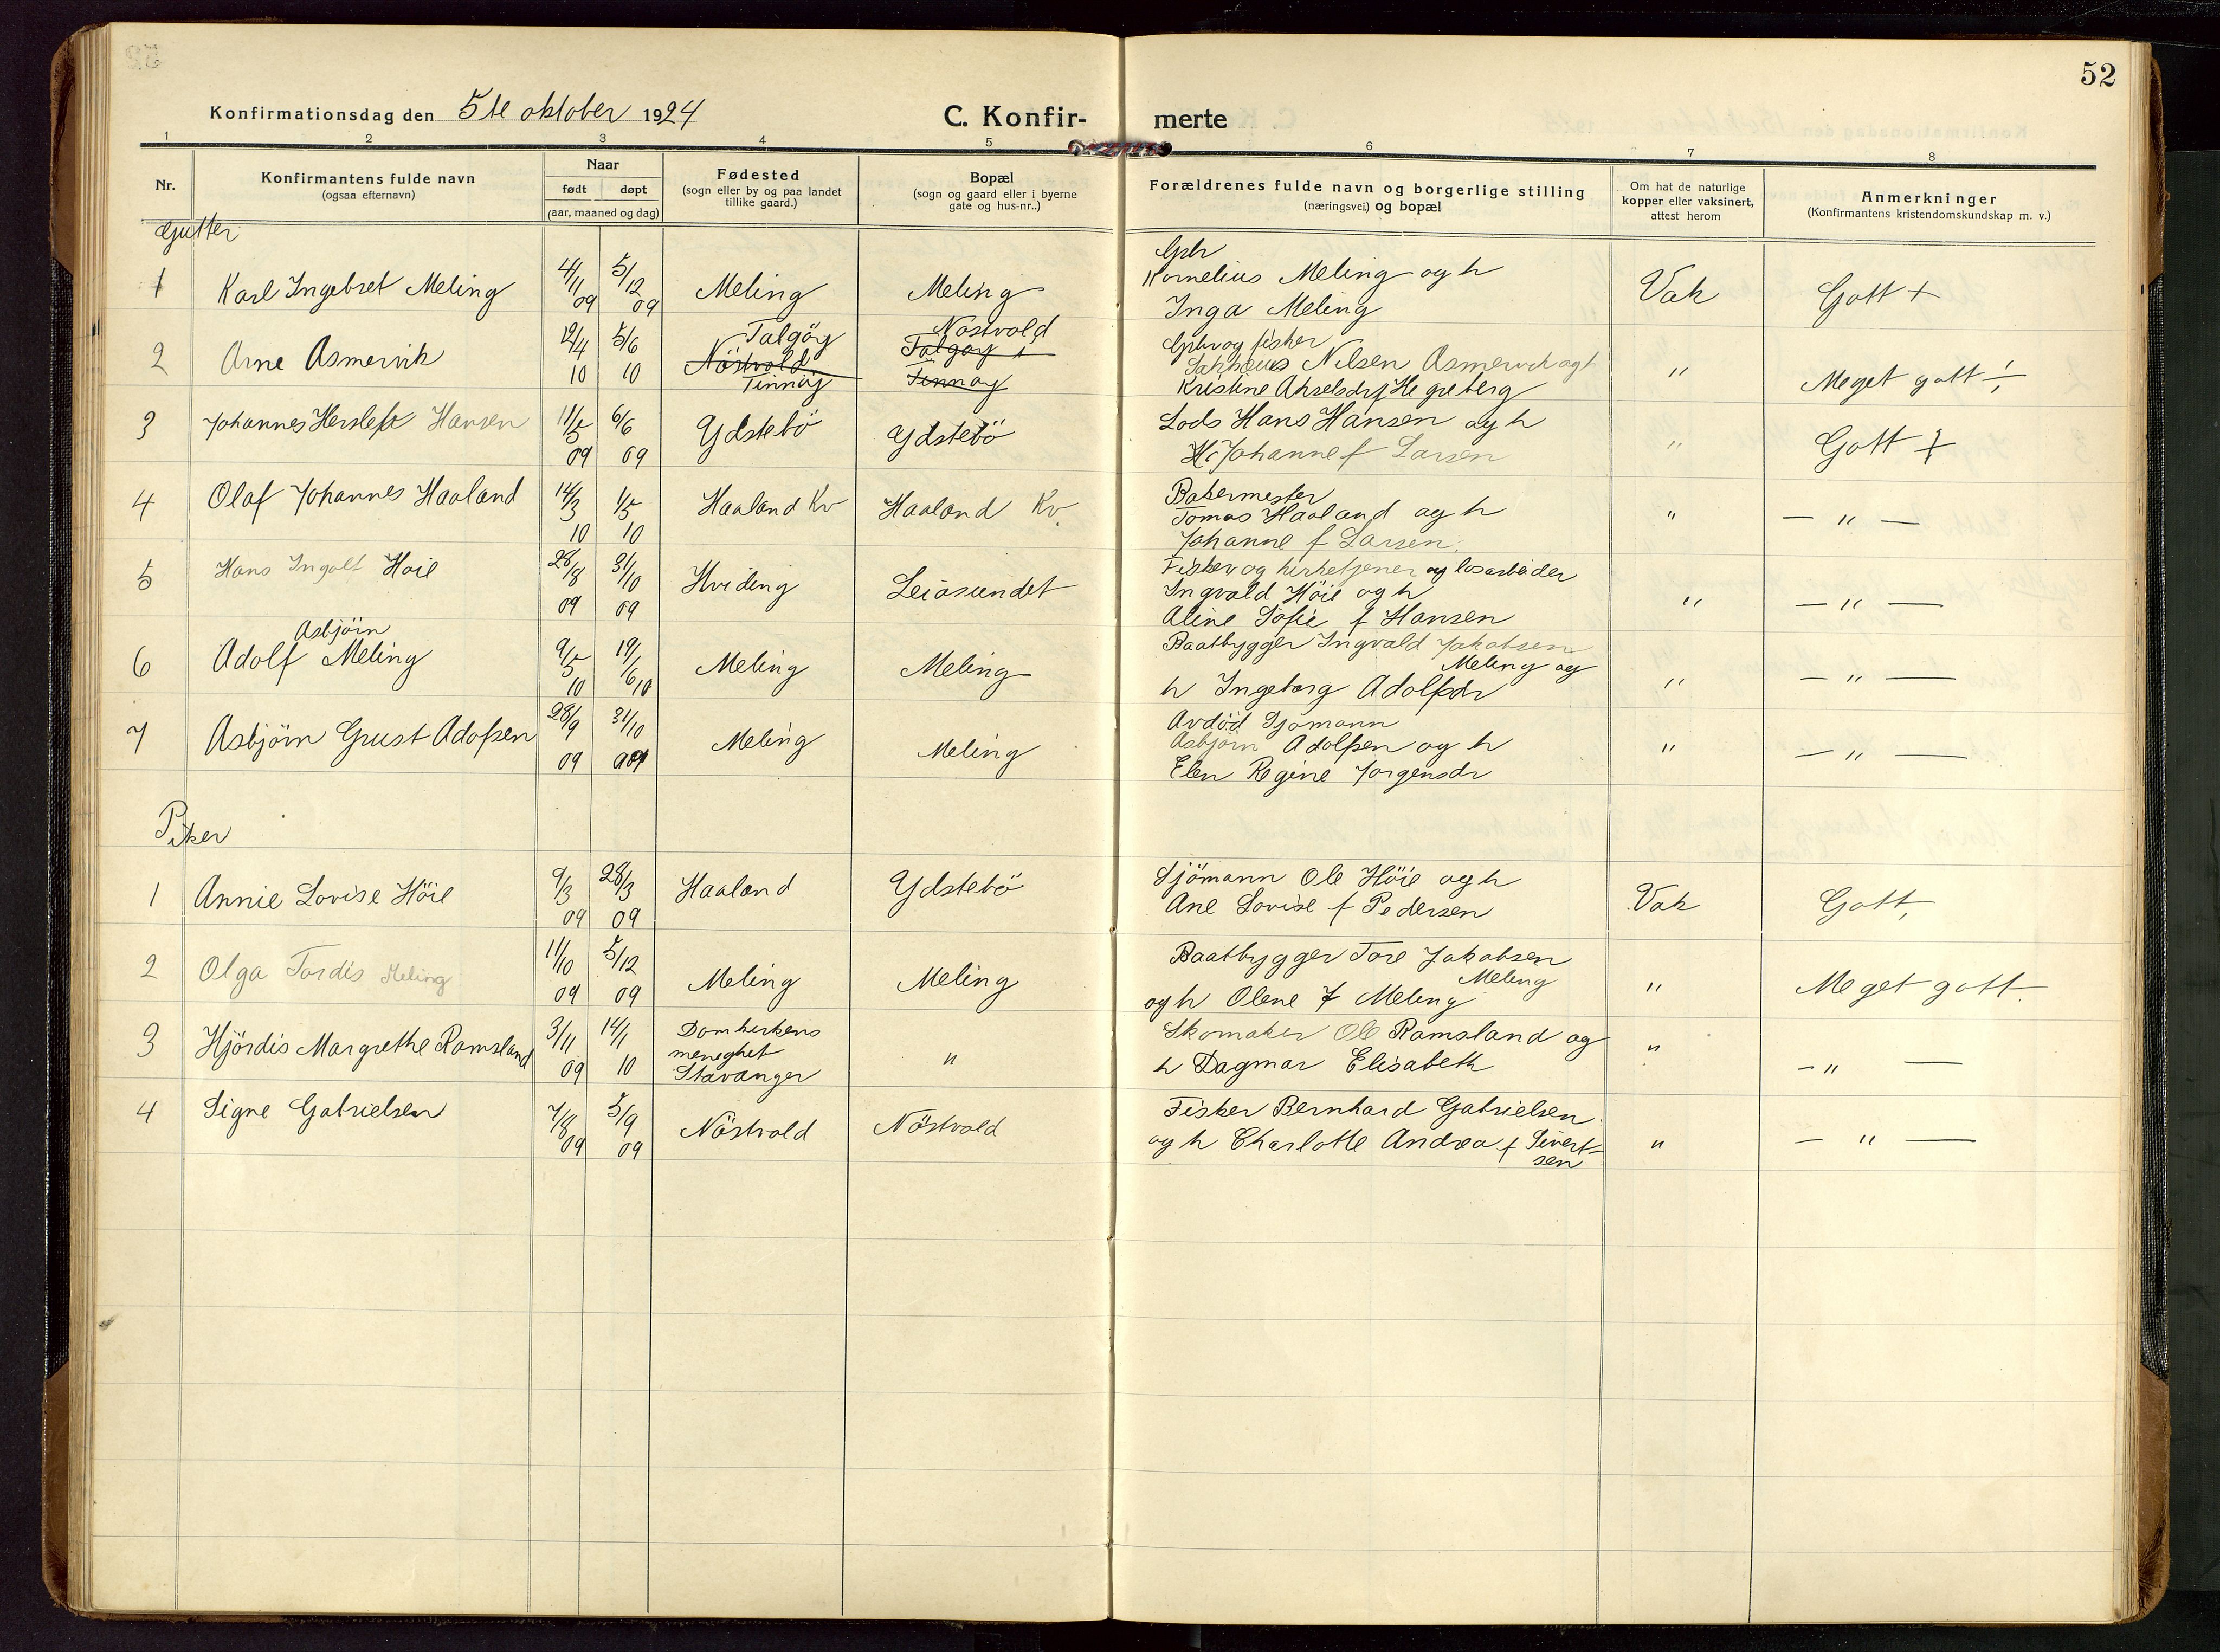 52
Konfirmationsdag den 5te oktober 1924
C. Konfir- merte
1 2 3 4 5 6 7 8
Nr.
Konfirmantens fulde navn
(ogsaa efternavn)
Naar
født døpt
(aar, maaned og dag)
Fødested
(sogn eller by og paa landet
tillike gaard.)
Bopæl
(sogn og gaard eller i byerne
gate og hus-nr..)
Forældrenes fulde navn og borgerlige stilling
(næringsvei) og bopæl
Om hat de naturlige
kopper eller vaksinert,
attest herom
Anmerkninger
(Konfirmantens kristendomskundskap m. v.)
Gutter
1 Karl Ingebret Meling 4/11 09 5/12 09 Meling Meling
Gbr
Kornelius Meling og h
Inga Meling
Vak Gott +
2 Arne Asmervik 12/4 10 5/6 10
Talgöy
Nöstvold
Finnöy
Nöstvold
Talgöy i
Finnöy
Gbr og fisker
Nilsen Asmervik og h
Kristine Akselsdr f Hegreberg
" Meget gott ÷
3 Johannes Herslef Hansen 11/5 09 6/6 09 Ydstebö Ydstebö
Lods Hans Hansen og h
Johanne f Larsen
" Gott +
4 Olaf Johannes Haaland 14/3 10 1/5 10 Haaland Kv Haaland Kv.
Bakermester
Tomas Haaland og h
Johanne f Larsen.
" — " —
5 Hans Ingolf Höie 28/8 09 31/10 09 Hviding Leiasundet
Fisker og kirketjener og losarbeider
Ingvald Höie og h
Aline Sofie f Hansen
" — " —
Asbjörn
6 Adolf Meling 9/5 10 19/6 10 Meling Meling
Baatbygger Ingvald Jakobsen
Meling og
h Ingeborg Adolfsdr
" — " —
7 Asbjörn Gust Adofsen 28/9 09 31/10 09 Meling Meling
Avdöd Sjömann
Asbjörn Adolfsen og h
Elen Regine Jorgensdr
" — " —
Piker
1 Annie Lovise Höie 9/3 09 28/3 09 Haaland Ydstebö
Sjömann Ole Höie og h
Ane Lovise f Pedersen
Vak Gott,
2 Olga Tordis Meling 11/10 09 5/12 09 Meling Meling
Baatbygger Tore Jakobsen
Meling
og h Olene f Meling
" Meget gott.
3 Hjördis Margrethe Ramsland 3/11 09 14/1 10
Domkirkens
meneghet
Stavanger
"
Skomaker Ole Ramsland og
h Dagmar Elisabeth
" — " —
4 Signe Gabrielsen 7/8 09 5/9 09 Nöstvold Nöstvold
Fisker Bernhard Gabrielsen
og h Charlotte Andrea f Sivert-
sen
" — " —